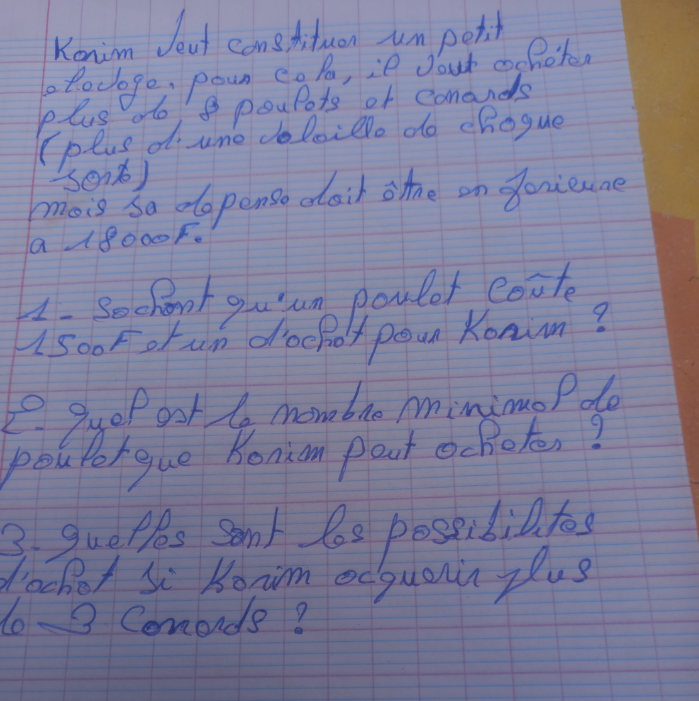 Karim veut constituer un petit
elevage. pour cela, il veut acheter
plus de 8 poulets et canards
(plus d'une volaille de chaque
sorte)
mais sa depense doit être inferieure
a 18000F.
1- Sachant qu'un poulet coûte
1500F et un d'achat pour Karim ?
2- quel est le nombre minimal de
poulet que Karim peut acheter ?
3- quelles sont les possibilites
d'achat si Karim acquerir plus
de 3 Canards ?